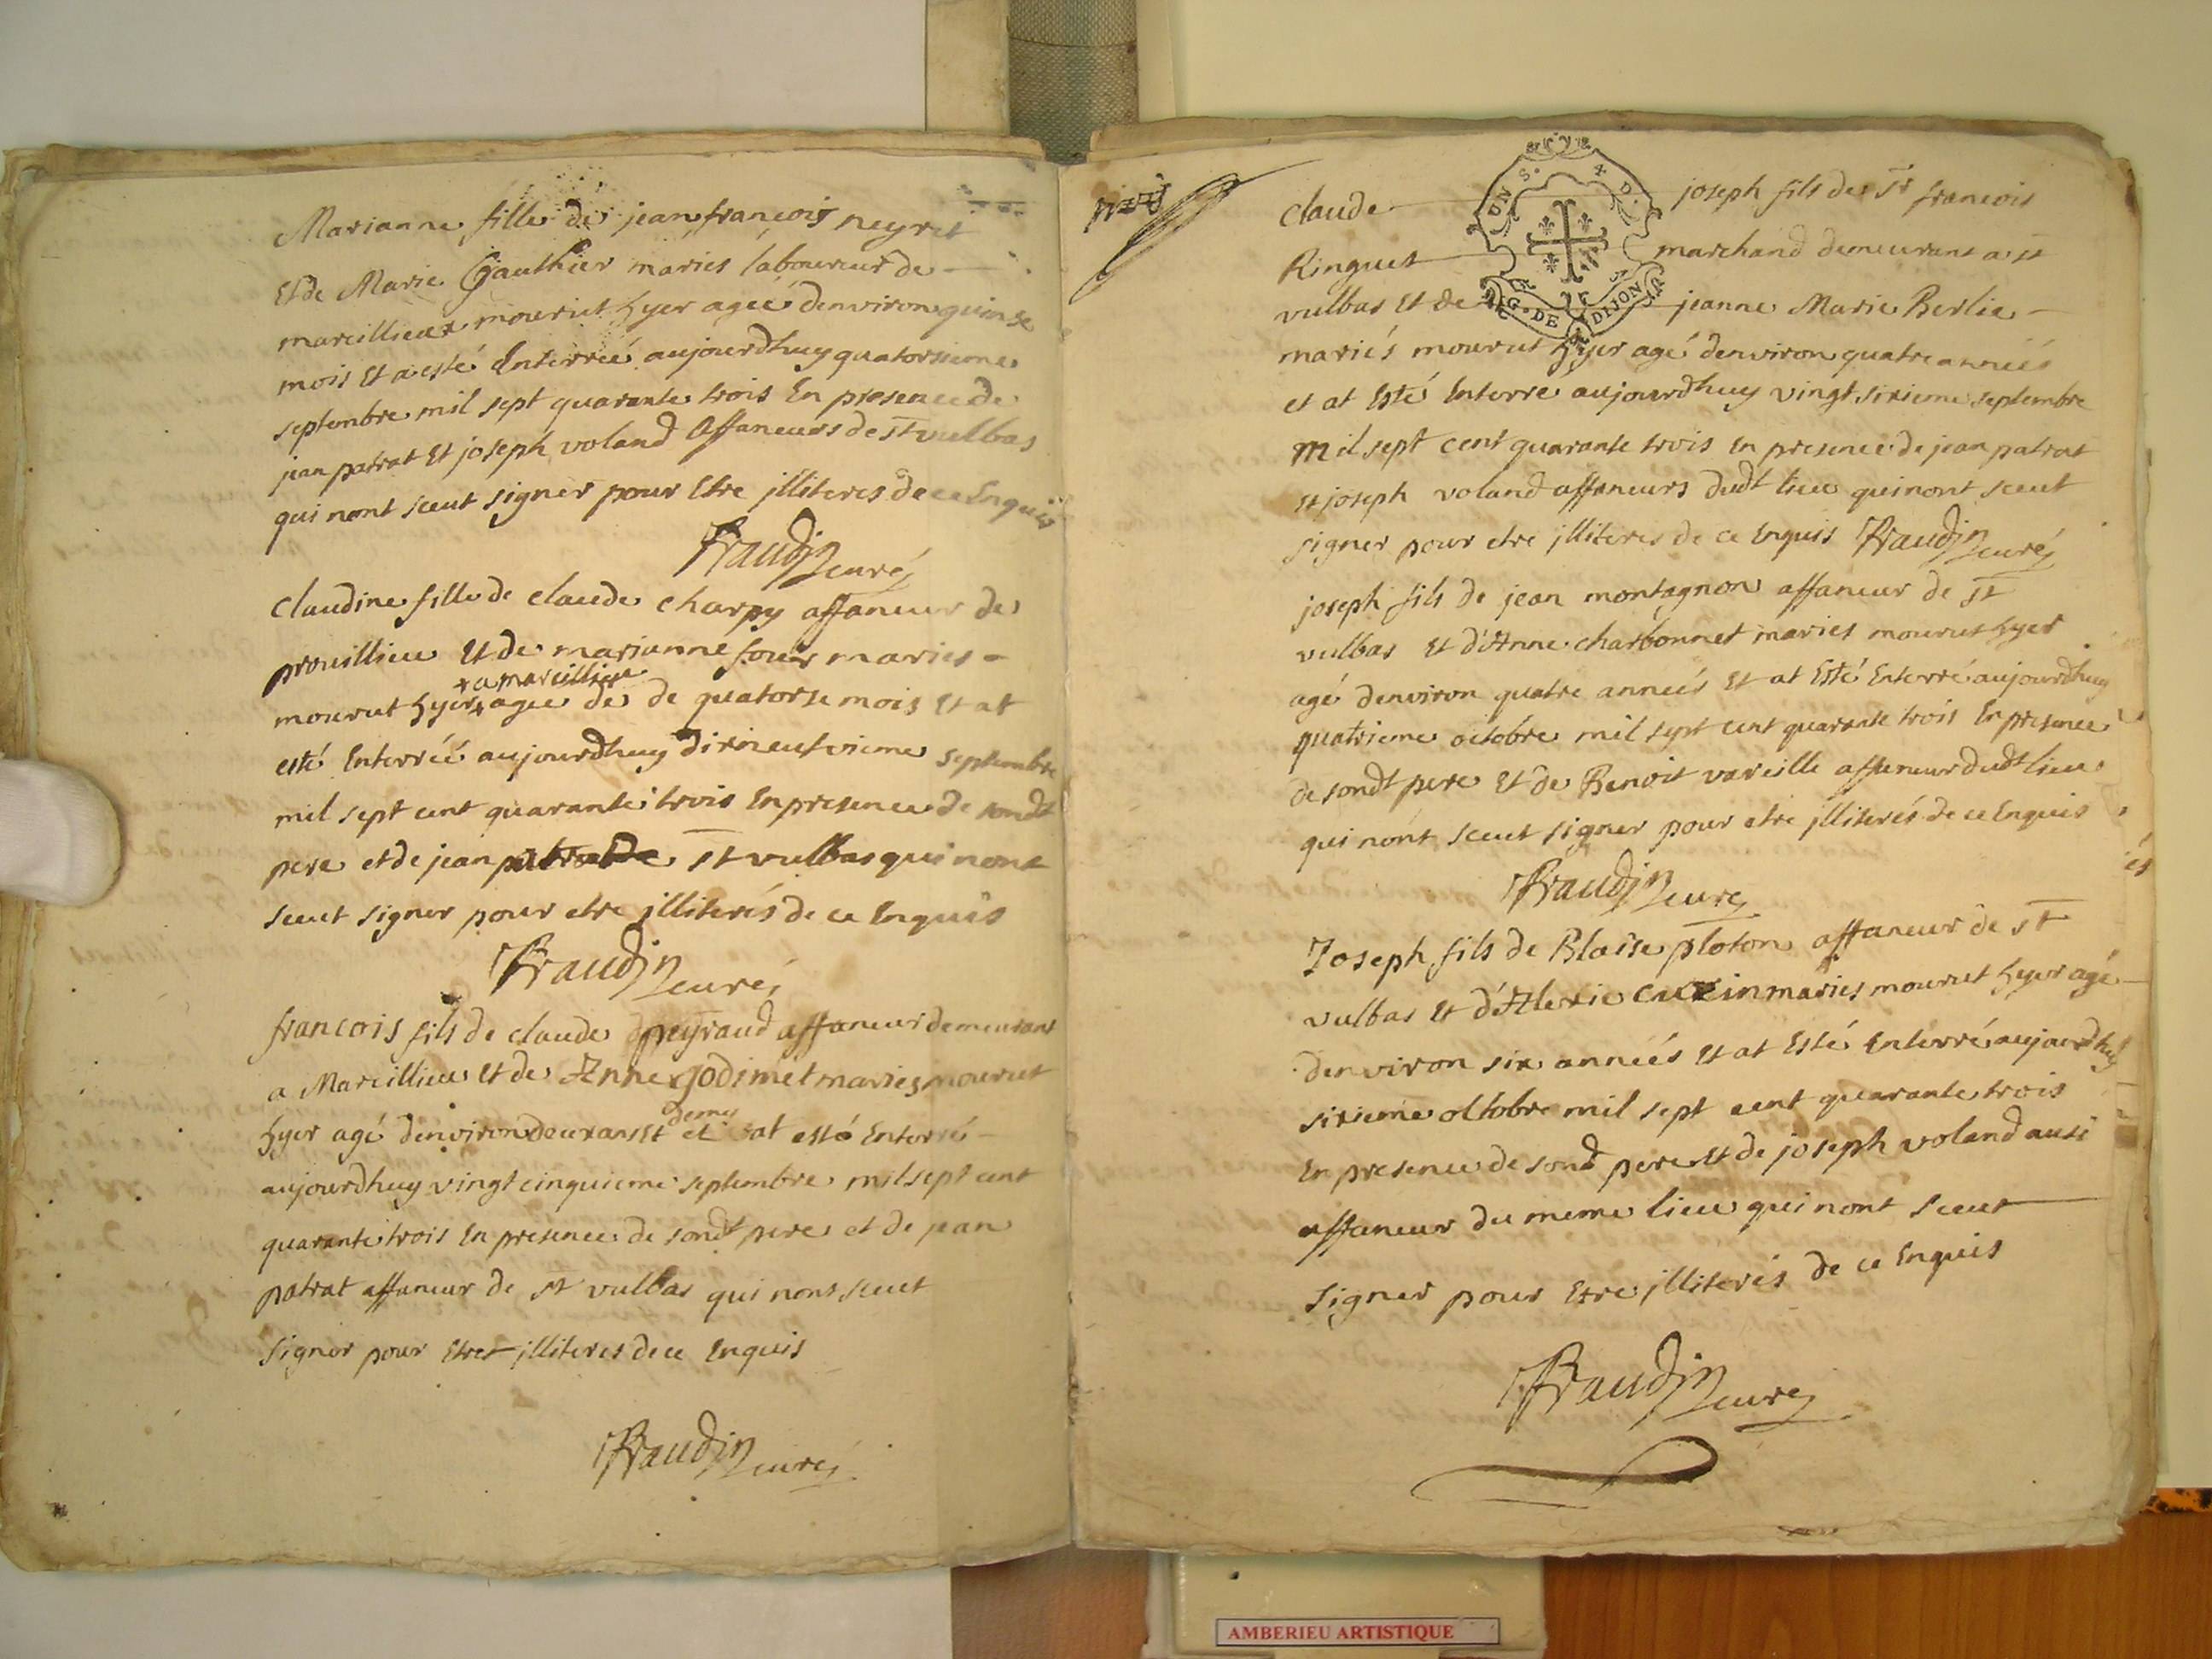 Marianne fille de jean francois neyret
Et de Marie Gauthier mariés laboureur de
marcillieux mourut hyer ageé denviron quinse
mois Et a esté Enterreé aujourdhuy quatorsieme
septembre mil sept quarante trois En presence de
jean patrat Et joseph voland Affaneurs de st vulbas
qui nont sceut signer pour Etre jlliteres de ce Enquis
Fraudin curé
claudine fille de claude charpy affaneur de
prouillieu Et de marianne maries
+ a marcillieu
mourut hyer + agee de de quatorse mois Et at
esté Enterreé aujourdhuy dixneufvieme septembre
mil sept cent quarante trois En presence de sondt
pere et de jean patrat de st vulbas qui nont
sceut signer pour etre jlliterés de ce Enquis
Fraudin curé
francois fils de claude peyraud affaneur demeurant
a Marcillieu Et de Anne jodimet maries mourut
demy
hyer agé denviron deux ans Et et at esté Enterré
aujourdhuy vingt cinquieme septembre mil sept cent
quarante trois En presence de sondt pere et de jean
patrat affaneur de st vulbas qui nont sceut
signer pour Etre jlliteres de ce Enquis
Fraudin curé
claude joseph fils de sr francois
Ringuet marchand demeurant a st
vulbas Et de jeanne Marie Berlie
UN S. 4 D.
G. DE DIJON
mariés mourut hyer agé denviron quatre anneés
et at Esté Enterre aujourdhuy vingt sixieme septembre
mil sept cent quarante trois En presence de jean patrat
Et joseph voland affaneurs dudt lieu qui nont sceut
signer pour etre jlliteres de ce Enquis Fraudin curé
joseph fils de jean montagnon affaneur de st
vulbas Et d'Anne charbonnet maries mourut hyer
agé denviron quatre anneés Et at Esté Enterré aujourdhuy
quatrieme octobre mil sept cent quarante trois En presence
de sondt pere Et de Benoit vareille affaneur dudt lieu
qui nont sceut signer pour etre jlliterés de ce Enquis
Fraudin curé
Joseph fils de Blaise ploton affaneur de st
vulbas Et d'Alexie cuzin maries mourut hyer agé
denviron six anneés Et at Esté Enterré aujourdhuy
sixieme oltobre mil sept cent quarante trois
En presence de sond pere Et de joseph voland ausi
affaneur du meme lieu qui nont sceut
signer pour Etre jlliterés de ce Enquis
Fraudin curé
AMBERIEU ARTISTIQUE